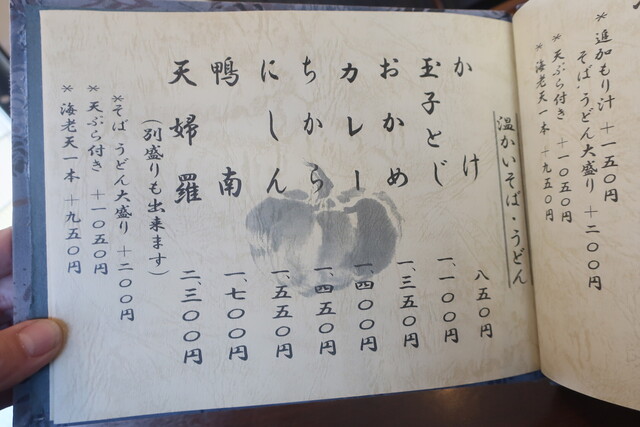 ＊追加もり汁 ＋一五〇円
そば・うどん大盛り ＋二〇〇円
＊天ぷら付き ＋一〇五〇円
＊海老天一本 ＋九五〇円
温かいそば・うどん
かけ 八五〇円
玉子とじ 一、一〇〇円
おかめ 一、三五〇円
カレー 一、四〇〇円
ちから 一、四五〇円
にしん 一、五五〇円
鴨南 一、七〇〇円
天婦羅 二、三〇〇円
（別盛りも出来ます）
＊そば・うどん大盛り ＋二〇〇円
＊天ぷら付き ＋一〇五〇円
＊海老天一本 ＋九五〇円